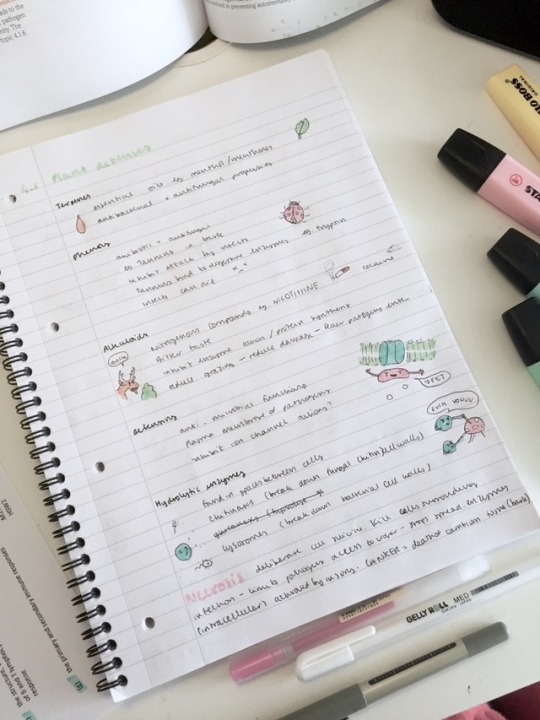 Plant defences
Terpenes
essential oils eg menthol/menthones
antibacterial + antifungal properties
Phenols
antibiotic + antifungal
eg Tannins in bark
inhibit attack by insects
Tannins bind to digestive enzymes eg trypsin
insects can die
Alkaloids
Nitrogenous compounds eg NICOTINE
cocaine
Bitter taste
inhibit enzyme action / protein synthesis
reduce grazing - reduce damage - less pathogens enter
defensins
anti-microbial functions
plasma membrane of pathogens
inhibit ion channel actions?
Hydrolytic enzymes
found in spaces between cells
chitinases (break down fungal chitin cell walls)
lysozomes (break down bacterial cell walls)
Necrosis deliberate cell suicide. Kill cells surrounding
infection - limits pathogens access to water - stops spread enzymes
(intracellular) activated by injury. CANKER = death of cambium tissue (bark)
BOSS
ORIGINAL
STA
GELLY ROLL MED
the primary and secondary immune responses